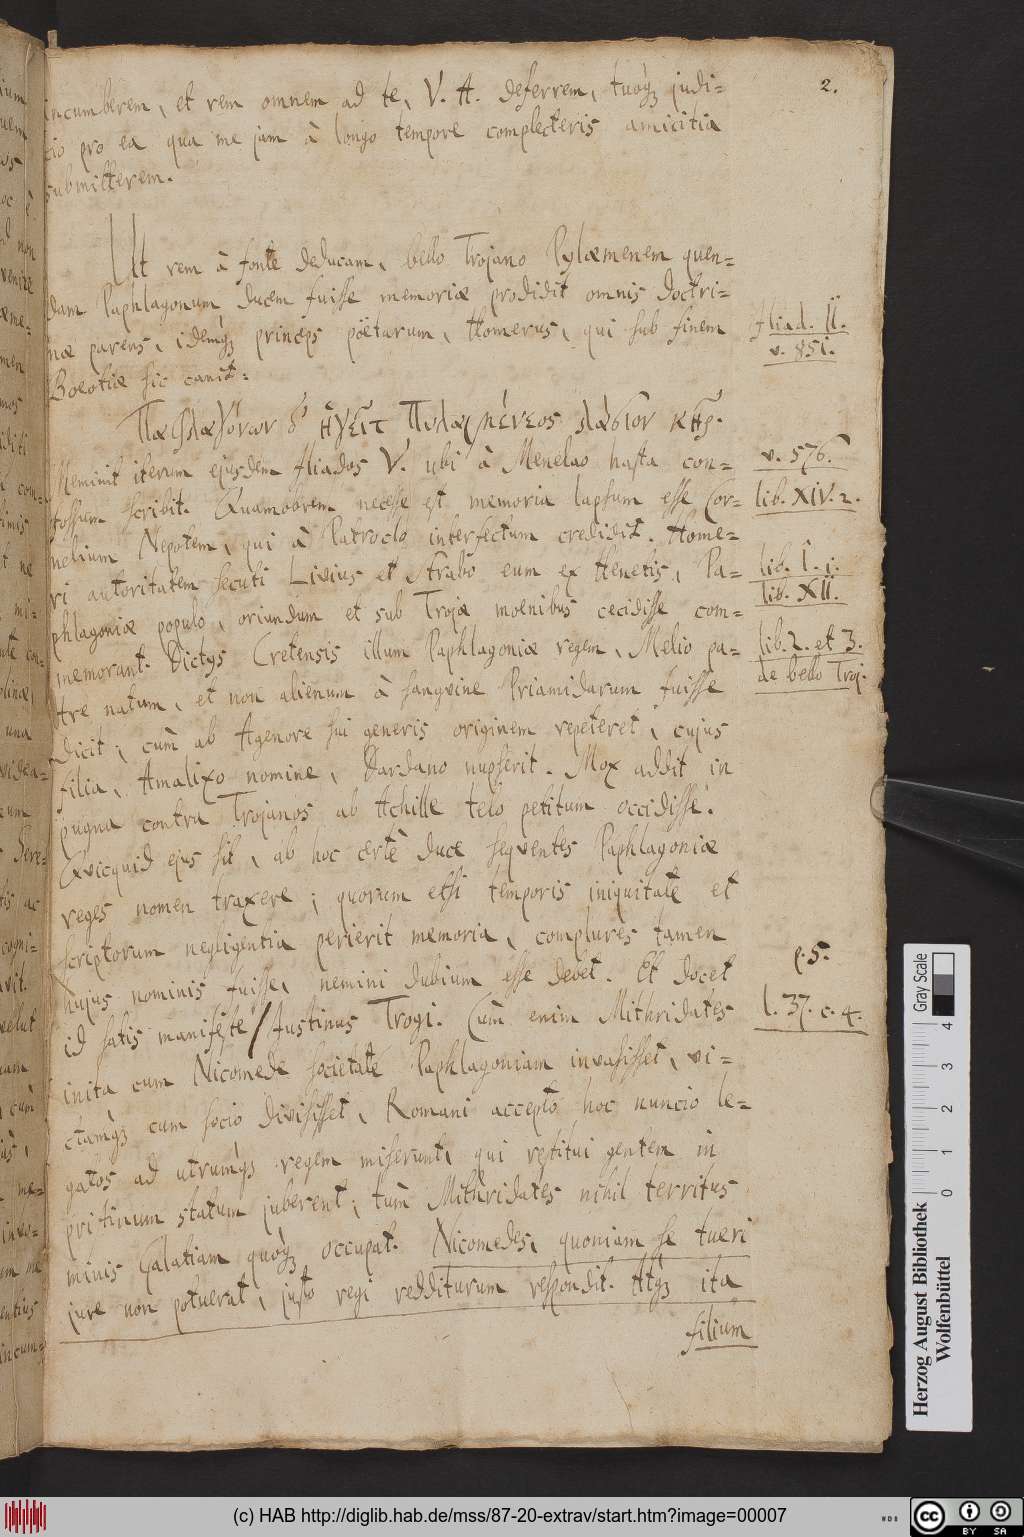 2.
incumberem, et rem omnem ad te, V. A. deferrem, tuoq; judi=
cio pro ea qua me jam à longo tempore complecteris amicitia
submitterem.
Ut rem à fonte deducam, bello Trojano Pylæmenem quen=
dam Paphlagonum ducem fuisse memoriæ prodidit omnis doctri=
næ parens, idemq; princeps poëtarum, Homerus, qui sub finem
Iliad. II.
v. 851.
Boeotiæ sic canit:
Παφλαγόνων δ' ἡγεῖτο Πυλαιμένεος λάσιον κῆρ.
Meminit iterum ejusdem Iliados V. ubi à Menelao hasta con=
v. 576.
fossum scribit. Quamobrem necesse est memoria lapsum esse Cor=
lib. XIV. 2.
nelium Nepotem, qui à Patroclo interfectum credidit. Home=
ri autoritatem secuti Livius et Strabo eum ex Henetis, Pa=
lib. I. 1.
lib. XII.
phlagoniæ populo, oriundum et sub Trojæ moenibus cecidisse com=
memorant. Dictys Cretensis illum Paphlagoniæ regem, Melio pa=
lib. 2. et 3.
de bello Troj.
tre natum, et non alienum à sangvine Priamidarum fuisse
dicit; cùm ab Agenore sui generis originem repeteret, cujus
filia, Amalixo nomine, Dardano nupserit. Mox addit in
pugna contra Trojanos ab Achille telo petitum occidisse.
Qvicquid ejus sit, ab hoc certè duce seqventes Paphlagoniæ
reges nomen traxere; quorum etsi temporis iniquitate et
scriptorum negligentia perierit memoria, complures tamen
hujus nominis fuisse, nemini dubium esse debet. Et docet
p. 5.
id satis manifestè / Justinus Trogi. Cùm enim Mithridates
l. 37. c. 4.
inita cum Nicomede societate Paphlagoniam invasisset, vi=
ctamq; cum socio divisisset, Romani accepto hoc nuncio le=
gatos ad utrumq; regem miserunt, qui restitui gentem in
pristinum statum juberent; tum Mithridates nihil territus
minis Galatiam quoq; occupat. Nicomedes, quoniam se tueri
jure non poterat, justo regi redditurum respondit. Atq; ita
filium
Gray Scale
0 1 2 3 4
Herzog August Bibliothek
Wolfenbüttel
(c) HAB http://diglib.hab.de/mss/87-20-extrav/start.htm?image=00007
cc BY SA